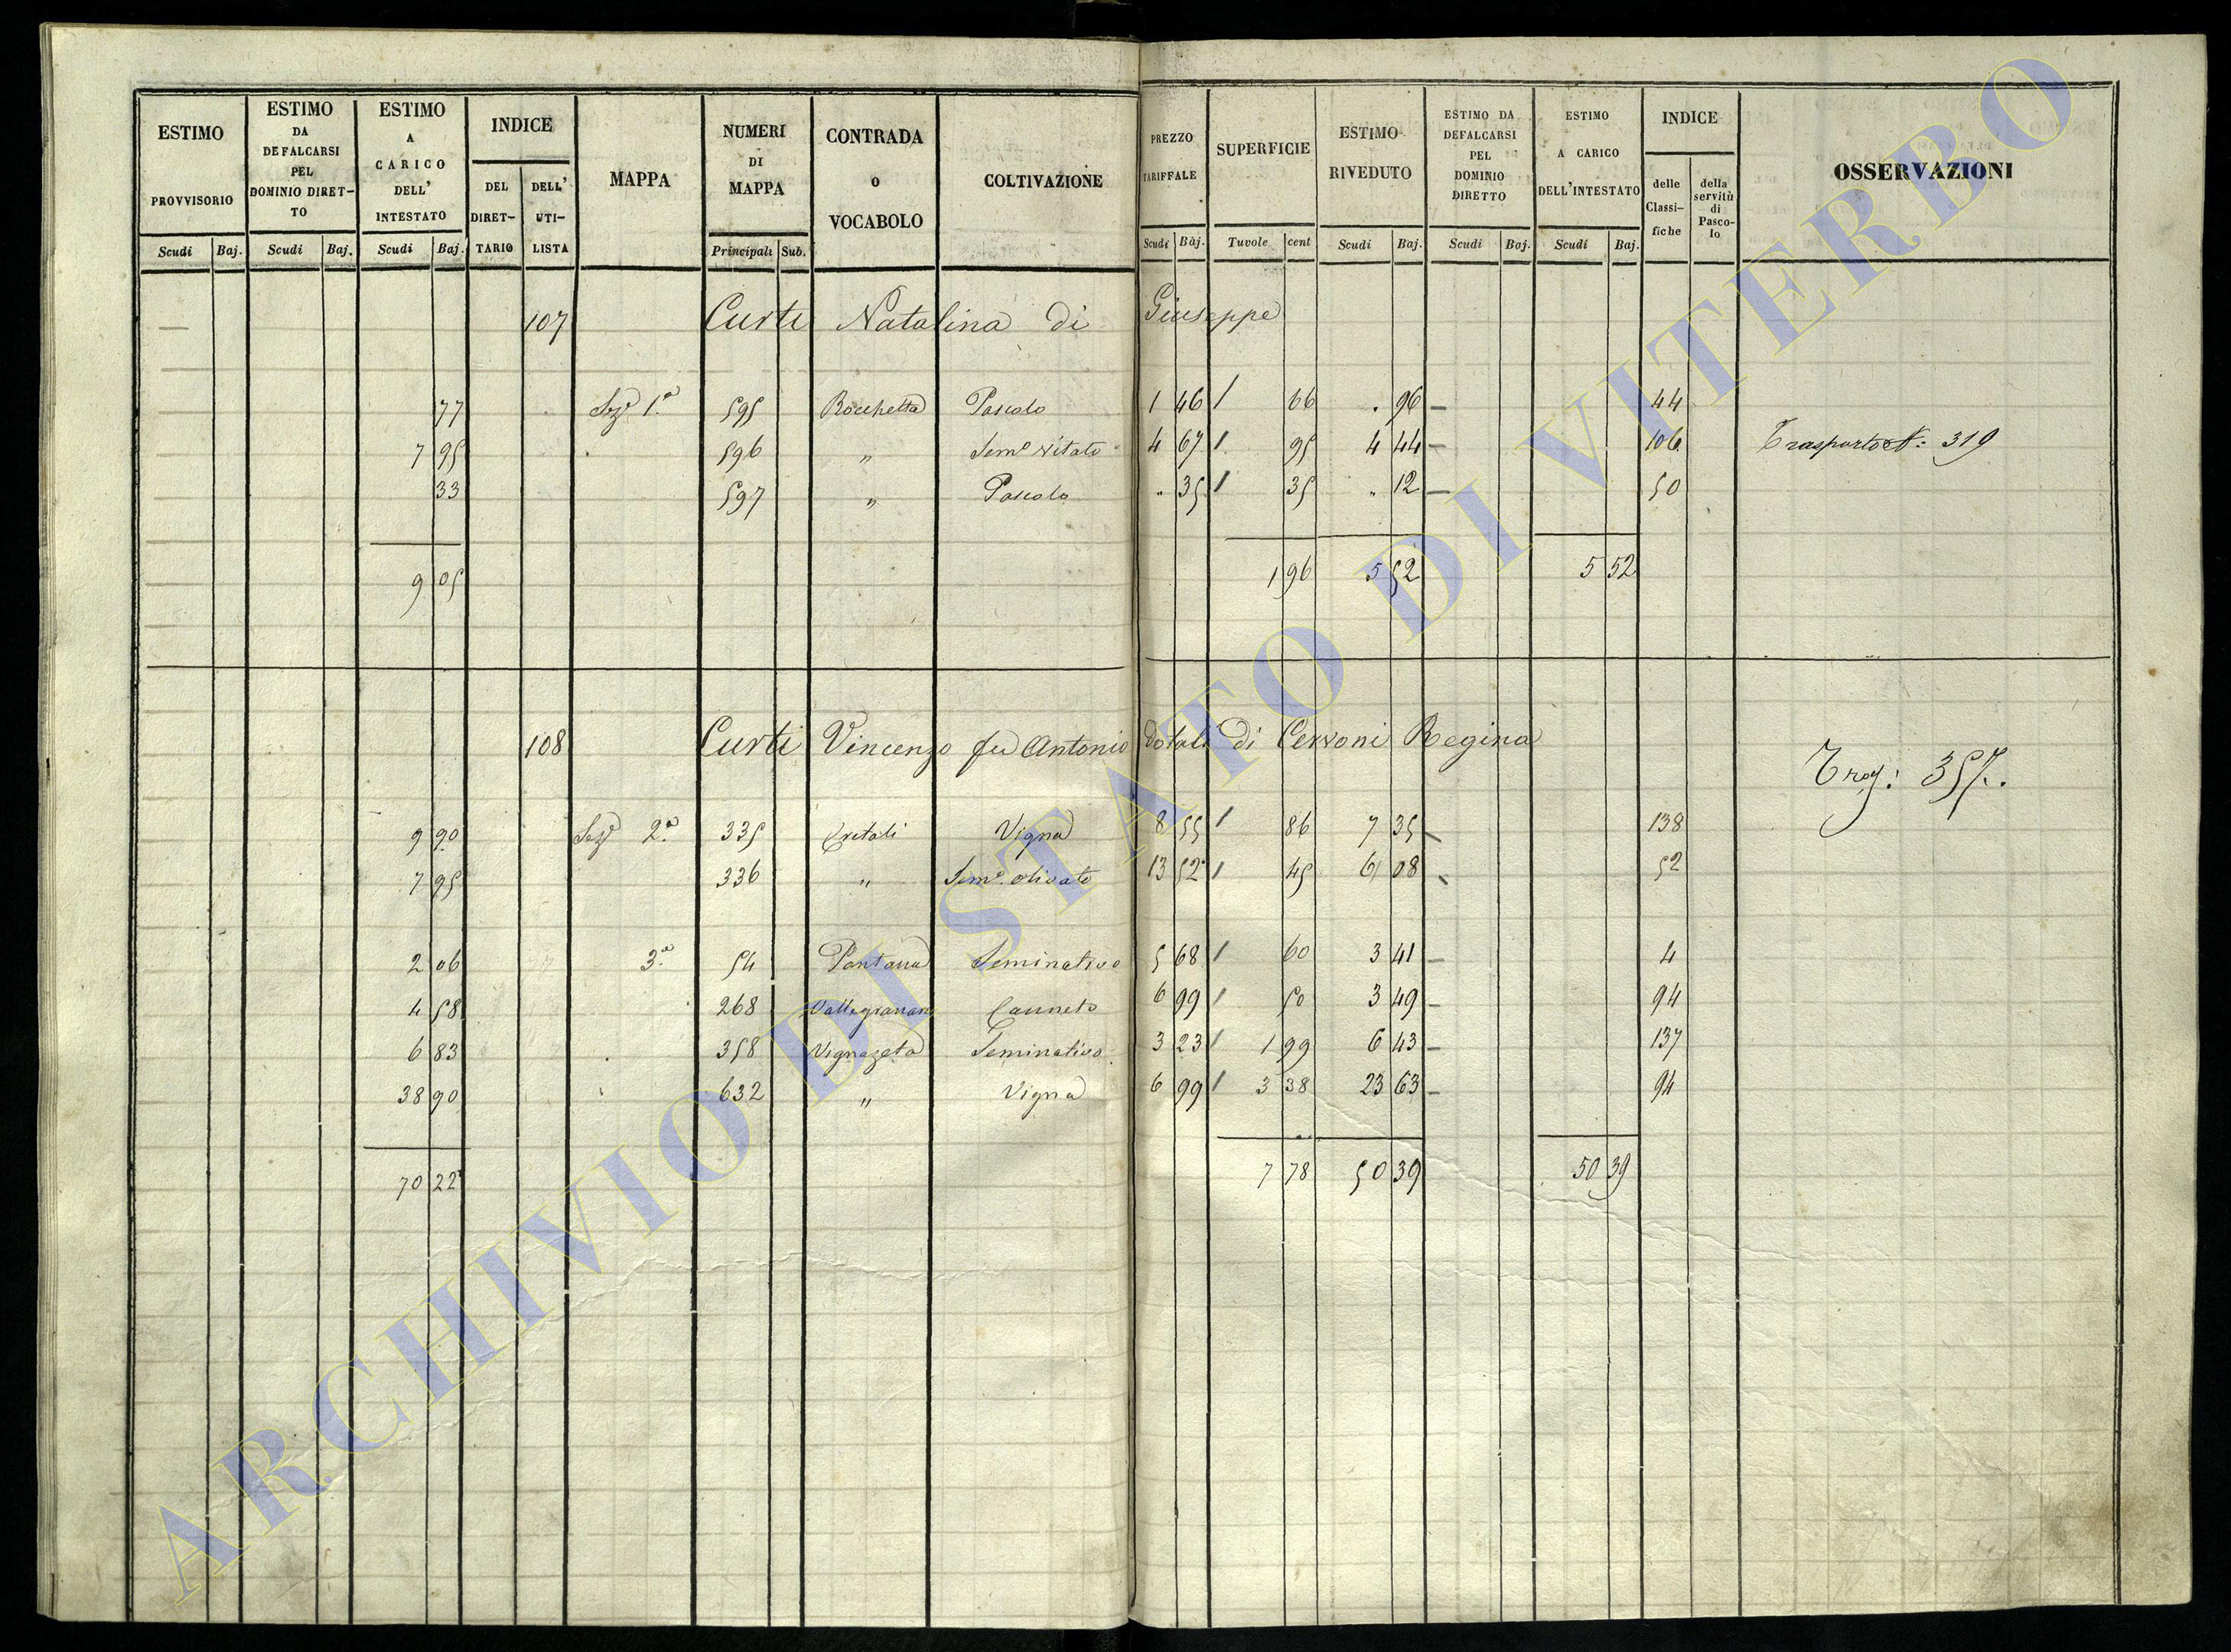 ESTIMO PROVVISORIO Scudi Baj.
ESTIMO DA DEFALCARSI PEL DOMINIO DIRET-TO Scudi Baj.
ESTIMO A CARICO DELL' INTESTATO Scudi Baj.
INDICE DEL DIRET-TARIO DELL' UTI-LISTA
MAPPA
NUMERI DI MAPPA Principali Sub.
CONTRADA O VOCABOLO
COLTIVAZIONE
PREZZO TARIFFALE Scudi Baj.
SUPERFICIE Tuvole cent
ESTIMO RIVEDUTO Scudi Baj.
ESTIMO DA DEFALCARSI PEL DOMINIO DIRETTO Scudi Baj.
ESTIMO A CARICO DELL'INTESTATO Scudi Baj.
INDICE delle Classi-fiche della servitù di Pasco-lo
OSSERVAZIONI
107 Curti Natalina di Giuseppe
77 Sez.e 1.a 595 Rocchetta Pascolo 1 46 / 66 . 96 — 44
7 95 596 " Sem.o vitato 4 67 / 95 4 44 — 106 Trasporto N: 319
33 597 " Pascolo " 35 / 35 " 12 — 50
9 05 1 96 5 52 5 52
108 Curti Vincenzo fu Antonio dotali di Cerroni Regina
Trasp: 357.
9 90 Sez.e 2.a 335 Cretali Vigna 8 55 / 86 7 35 138
7 95 336 " Sem.o olivato 13 52 / 45 6 08 52
2 06 3.a 54 Pantana Seminativo 5 68 / 60 3 41 — 4
4 58 268 Canneto 6 99 / 50 3 49 — 94
6 83 358 Seminativo 3 23 / 1 99 6 43 — 137
38 90 632 " Vigna 6 99 / 3 38 23 63 — 94
70 22 7 78 50 39 50 39
ARCHIVIO DI STATO DI VITERBO